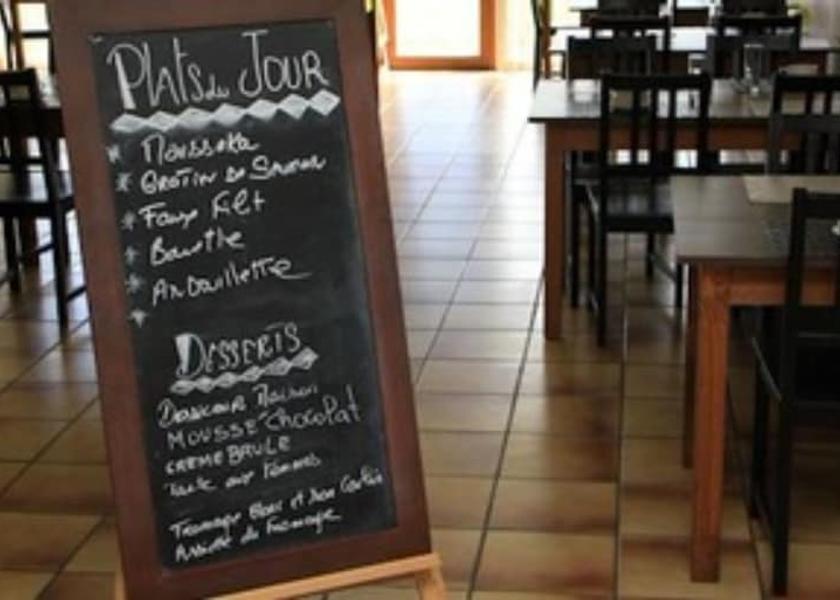 Plats du JOUR
Moussaka
Gratin de Saumon
Faux Filet
Bavette
Andouillette
DESSERTS
Douceur Maison
MOUSSE Chocolat
CREME BRULE
Tarte aux Pommes
Fromage Blanc et son Coulis
Assiette de Fromage